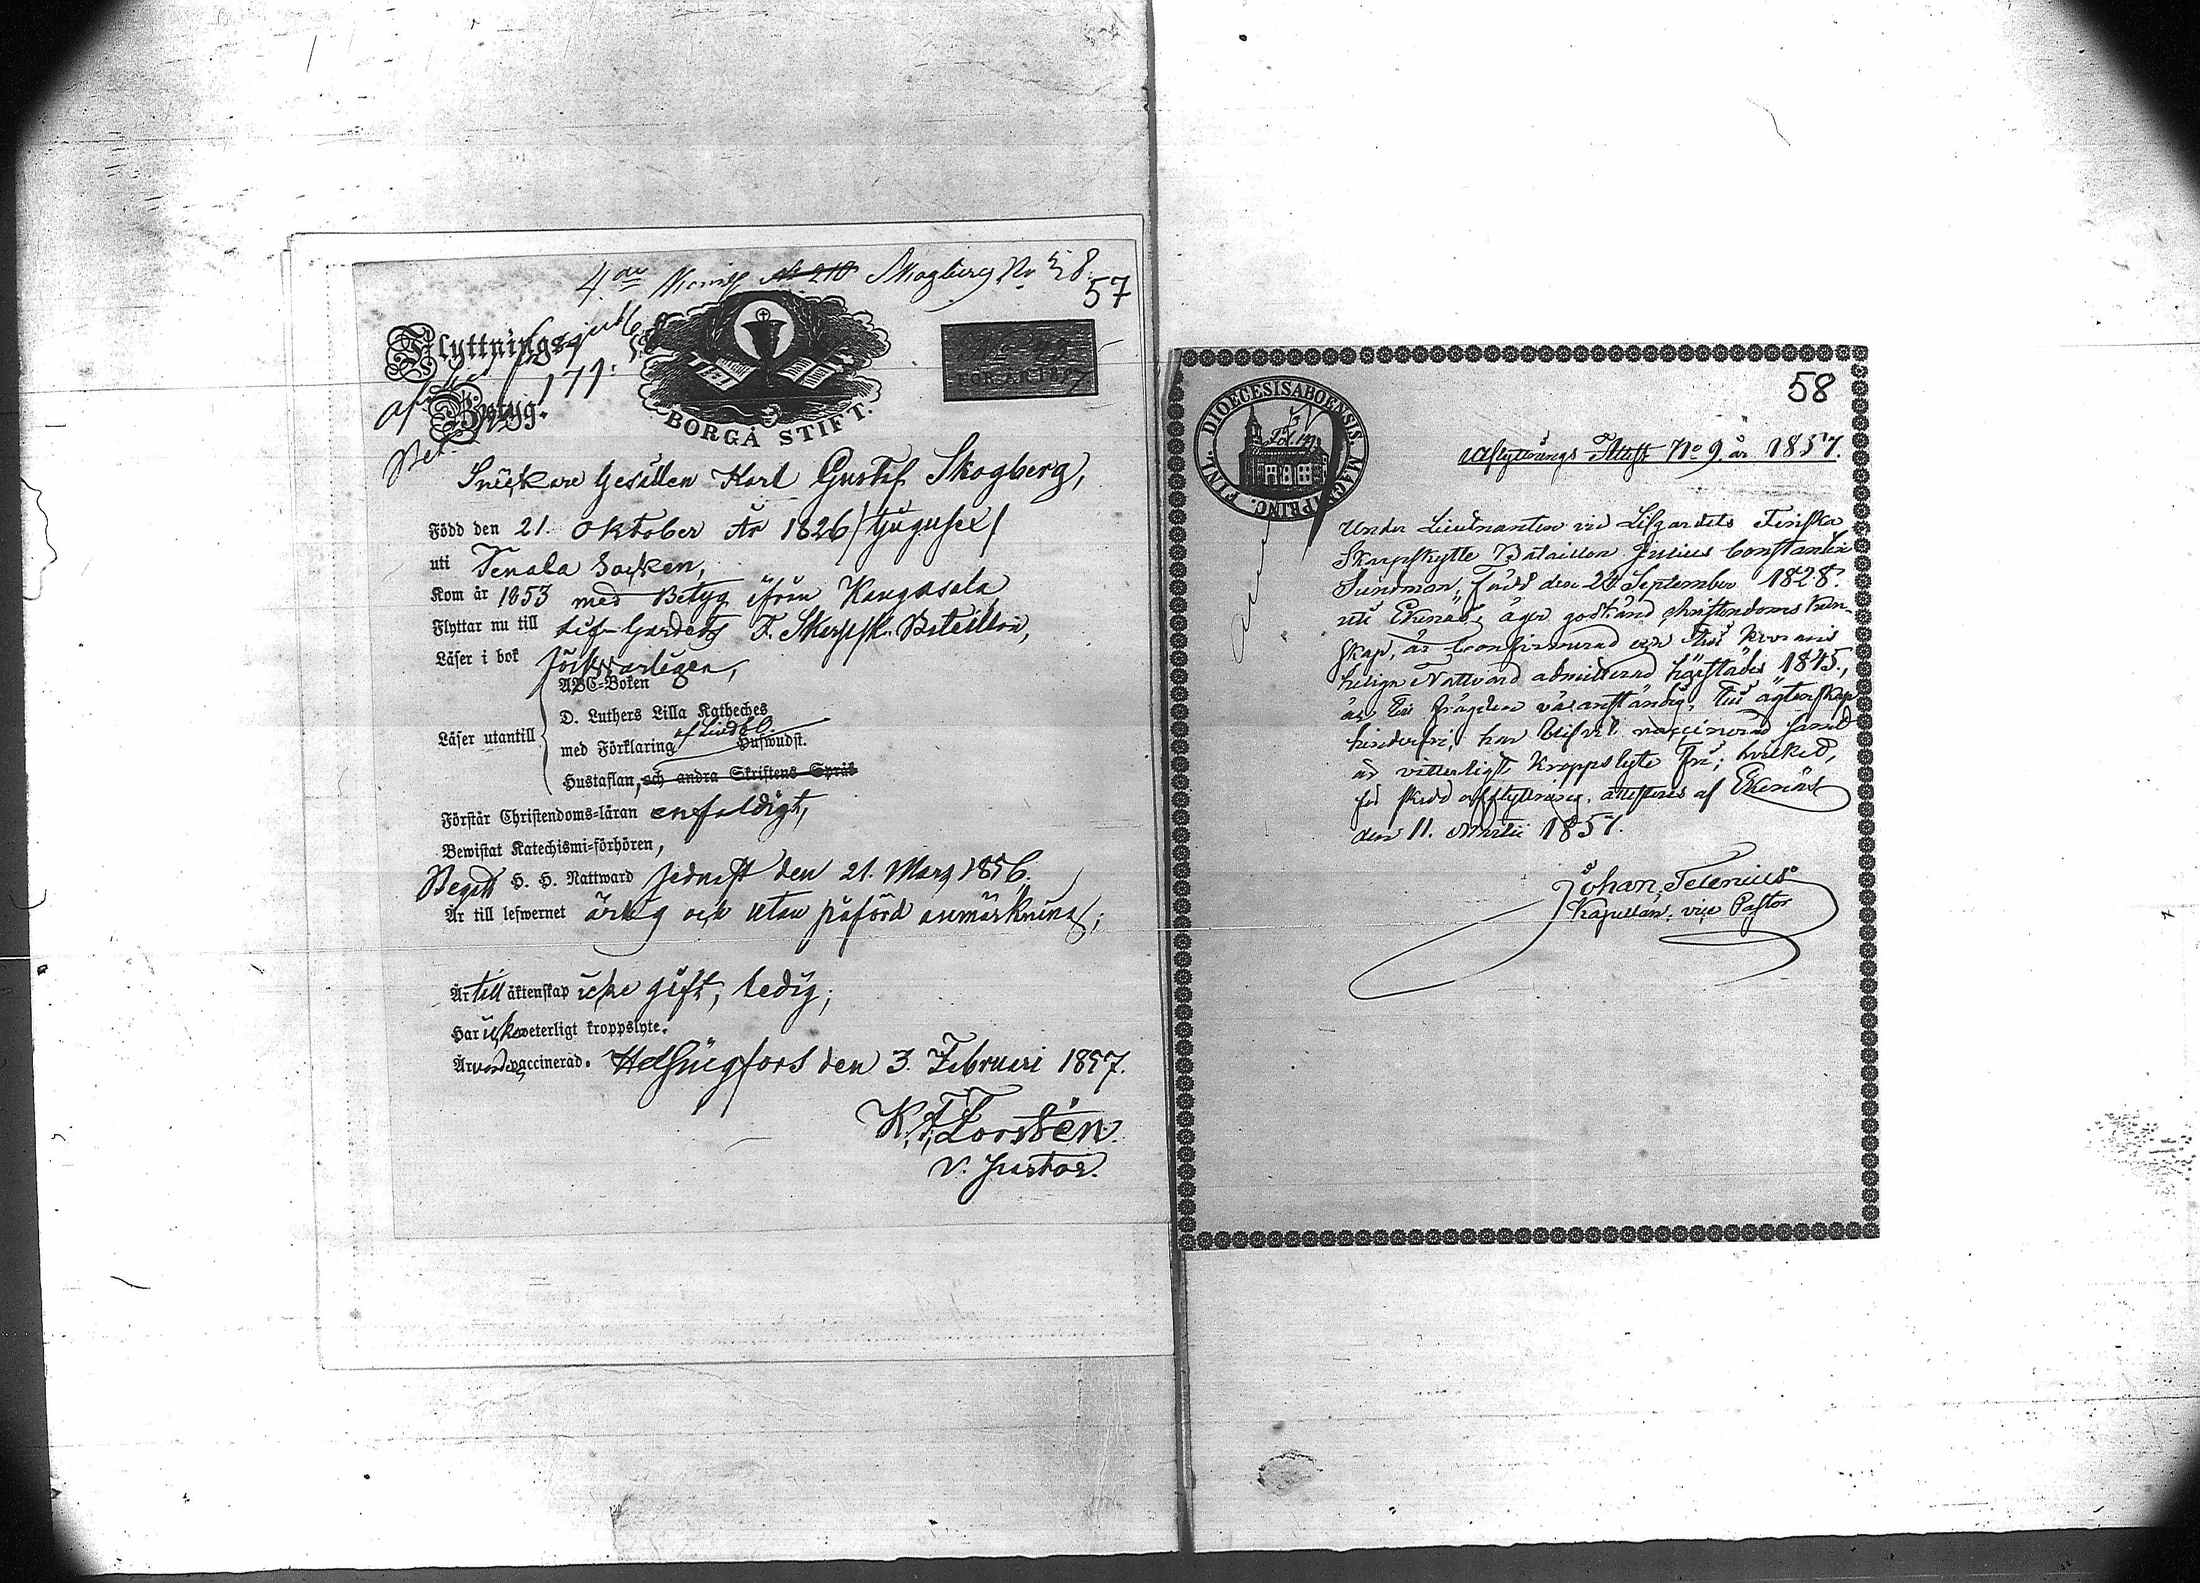 4de Komp No 210 Skogberg No 58.
57
Flyttnings-
Betyg.
171.
BORGÅ STIFT.
FÖR ÅR 1857
Snickare Gesällen Karl Gustaf Skogberg,
Född den 21. Oktober År 1826 /tjugusex/
uti Tenala Socken,
Kom år 1853 med Betyg ifrån Kangasala
Flyttar nu till Lif-Gardets F. Skarpsk. Bataillon,
Läser i bok försvarligen,
ABC-Boken
D. Luthers Lilla Katheches
Läser utantill
med Förklaring af Lindbl. Hufwudst.
Hustaflan, och andra Skriftens Språk
Förstår Christendoms-läran enfaldigt,
Bewistat Katechismi-förhören,
Begått H. H. Nattward sednast den 21. Mars 1856.
Är till lefwernet ärlig och utan påförd anmärkning;
Är till äktenskap icke gift, ledig;
Har icke weterligt kroppslyte.
Är vaccinerad. Helsingfors den 3. Februari 1857.
K. F. Forstén.
V. Pastor.
58
DIOECESIS ABOENSIS. MAGN. PRINC. FINL.
Afflyttnings Attest No 9. år 1857.
Under Lieutnanten vid Lifgardets Finska
Skarpskytte Bataillon Julius Constantin
Sundman, född den 24 September 1828.
uti Ekenäs, äger godkänd christendoms kun-
skap, är confirmerad och till Herrans
heliga Nattvard admitterad 1845,
är till frägden välanständig, till ägtenskap
hinderfri, har blifvit vaccinerad samt
är vitterligt kroppslyte fri; hvilket,
för skedd afflyttning, attesteras af Ekenäs
den 11. Martii 1857.
Johan Telenius
Kapellan, vice Pastor